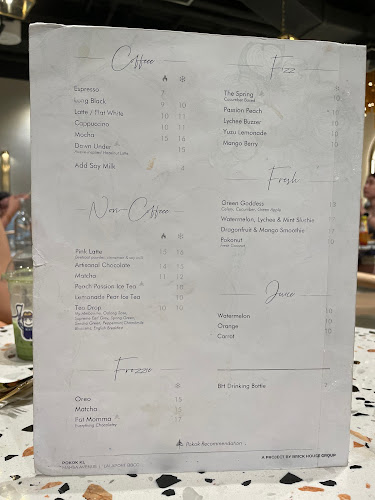 Coffee
Espresso 8
Long Black 9 10
Latte / Flat White 10 11
Cappuccino 10 11
Mocha 15 16
Down Under 15
Add Soy Milk
Non-Coffee
Pink Latte 15 16
Artisanal Chocolate 14 15
Matcha 11 12
Peach Passion Ice Tea 18
Lemonade Pear Ice Tea 15
Tea Drop 10 10
Frozzie
Oreo 15
Matcha 15
Fat Momma 17
Everything Chocolatey
POKOK KL
Fizz
The Spring 10
Cucumber Based
Passion Peach
Lychee Buzzer 10
Yuzu Lemonade 10
Mango Berry 10
Fresh
Green Goddess 13
Celery, Cucumber, Green Apple
Watermelon, Lychee & Mint Slushie
Dragonfruit & Mango Smoothie
Pokonut 10
Juice
Watermelon 10
Orange 10
Carrot 10
BH Drinking Bottle 2
Pokok Recommendation
A PROJECT BY BRICK HOUSE GROUP